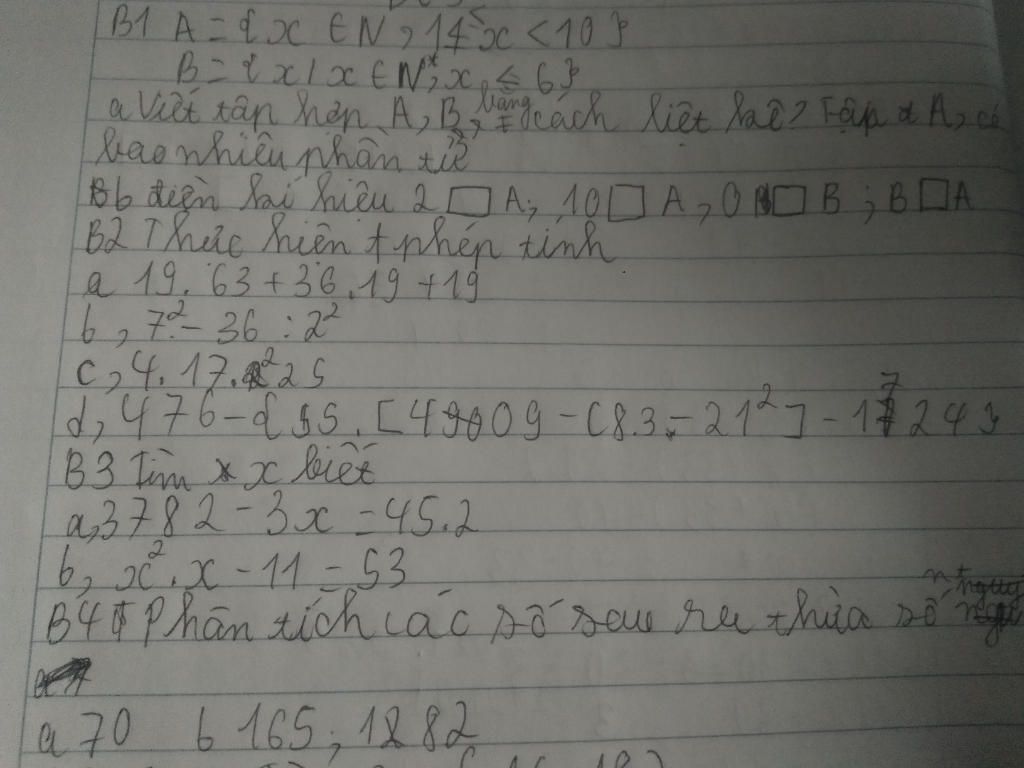 B1 A = { x ∈ N, 14 ≤ x < 10 }
B = { x / x ∈ N*, x ≤ 6 }
a Viết tập hợp A, B, bằng cách liệt kê? Tập A, có
bao nhiêu phần tử
b điền kí hiệu 2 □ A; 10 □ A, 0 □ B ; B □ A
B2 Thực hiện phép tính
a 19. 63 + 36. 19 + 19
b, 7² - 36 : 2²
c, 4. 17. 25
d, 476 - { 5. [ 409 - (8.3 - 21² ] - 1724 }
B3 Tìm x biết
a, 3782 - 3x = 45.2
b, x². x - 11 = 53
B4 Phân tích các số sau ra thừa số nt
a 70 b 165; 1282